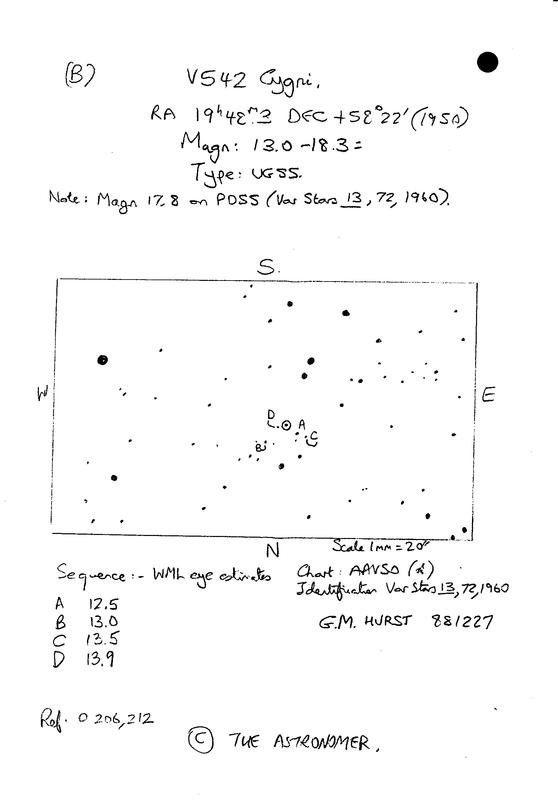 (B)
V542 Cygni.
RA 19ʰ48ᵐ.3 DEC +58°22' (1950)
Magn: 13.0 - 18.3 =
Type: UGSS.
Note: Magn 17.8 on POSS (Var Stars 13, 72, 1960).
S.
W
E
D
A
C
B
N
Scale 1mm = 20"
Sequence :- WML eye estimates
A 12.5
B 13.0
C 13.5
D 13.9
Chart: AAVSO (d)
Identification Var Stars 13, 72, 1960
G.M. HURST 881227
Ref. 0 206,212
© THE ASTRONOMER.